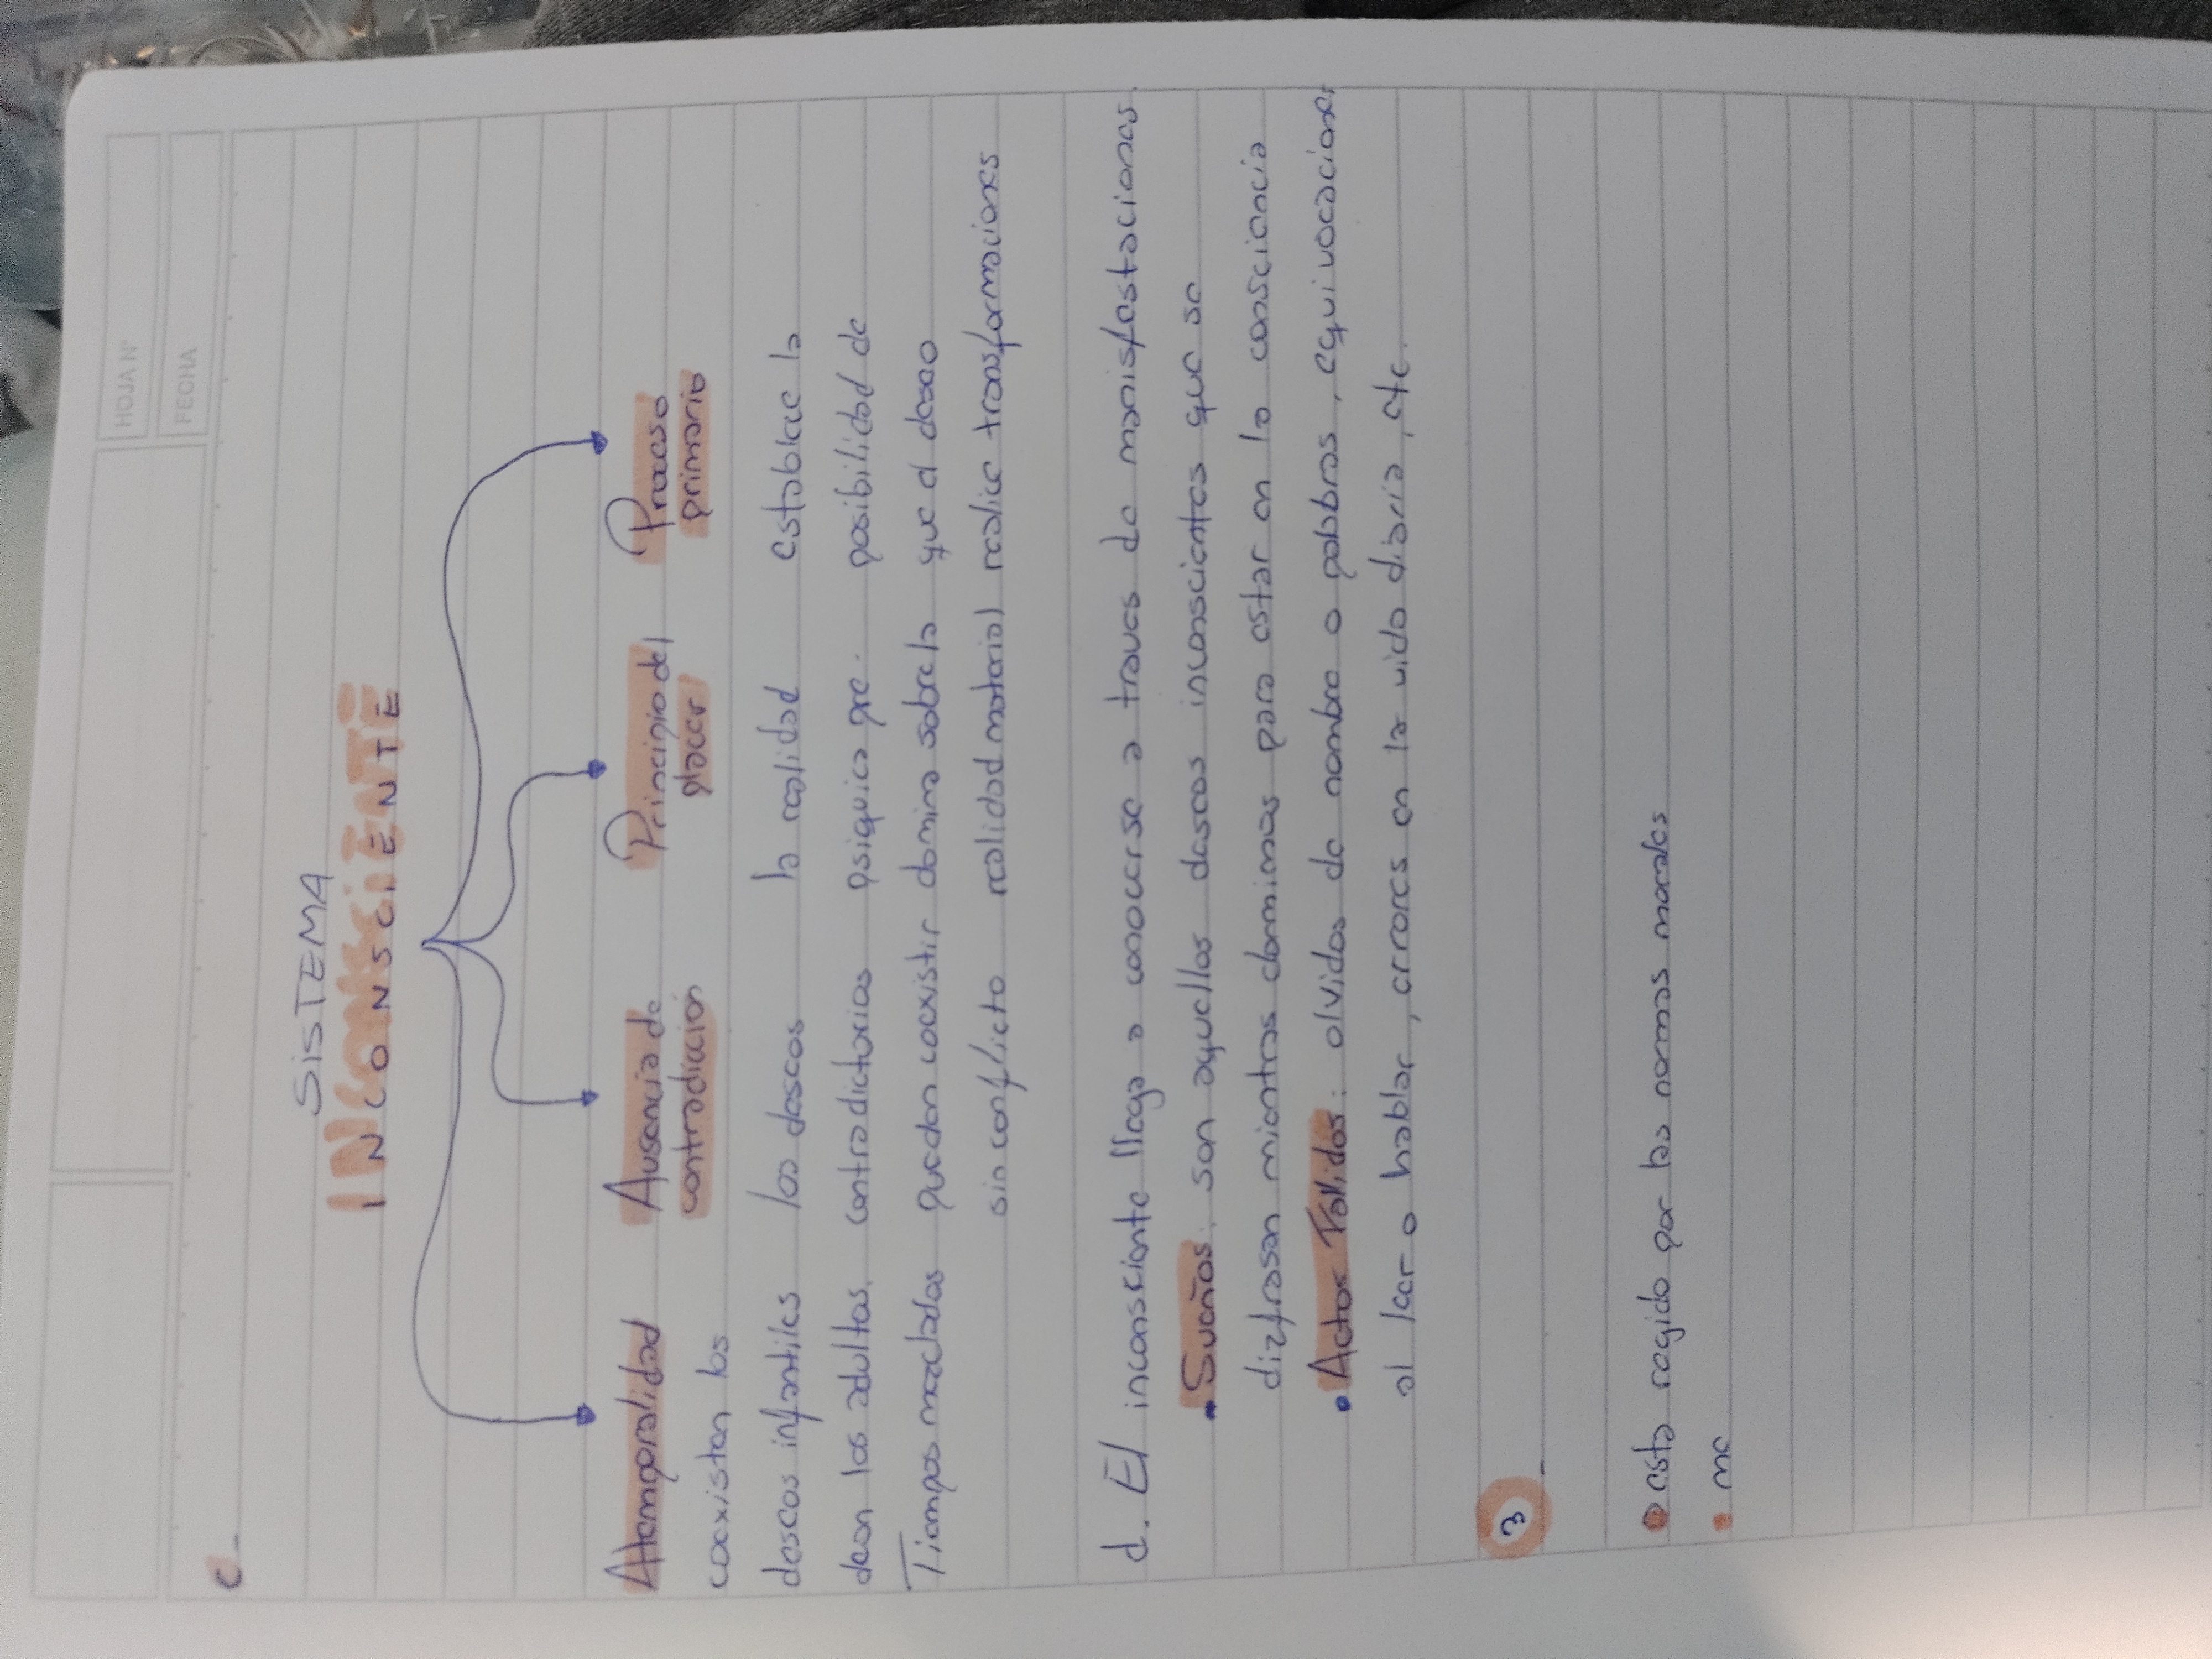 HOJA N°
FECHA
C-
SISTEMA
INCONSCIENTE
Atemporalidad
Ausencia de contradicción
Principio del placer
Proceso primario
coexisten los
deseos infantiles
deon los adultos.
Tiempos mezclados
los deseos
contradictorios
pueden coexistir
sin conflicto
la realidad
psiquica pre-
domina sobre la
realidad material
establece la
posibilidad de
que el deseo
realice transformaciones
d. El inconsciente llega a conocerse a traves de manisfestaciones.
• Sueños: son aquellos deseos inconscientes que se
disfrasan mientras dormimos para estar en la consciencia
• Actos Fallidos: olvidos de nombre o palabras, equivocaciones
al leer o hablar, errores en la vida diaria, etc.
3
• esta regido por las normas morales
• me